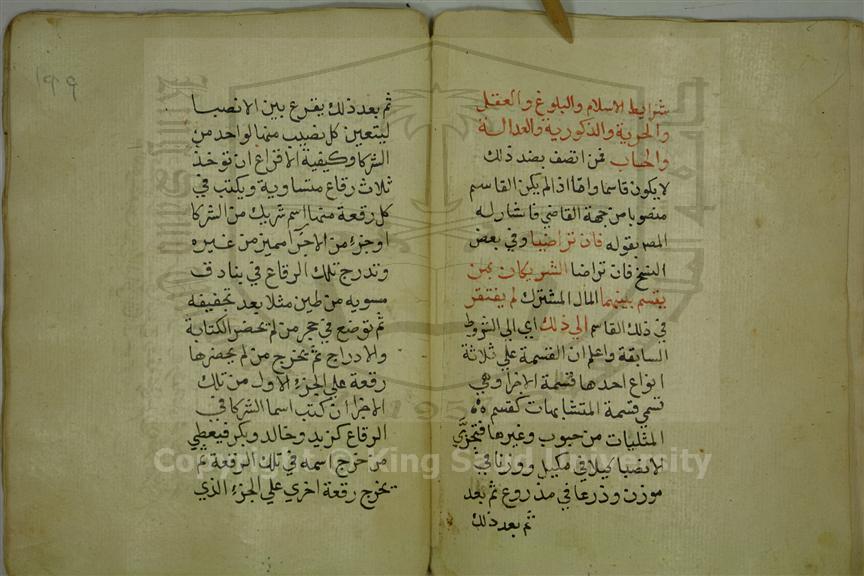 شرايط الاسلام والبلوغ والعقل
والحرية والذكورية والعدالة
والحساب فمن اتصف بضد ذلك
لا يكون قاسما واما اذا لم يكن القاسم
منصوبا من جهة القاضي فاشار له
المص بقوله فان تراضيا وفي بعض
النسخ فان تراضا الشريكان بمن
يقسم بينهما المال المشترك لم يفتقر
في ذلك القاسم الي ذلك اي الي الشروط
السابقة واعلم ان القسمة علي ثلاثة
انواع احدها قسمة الاجزا وهي
تسمي قسمة المتشابهات كقسمه
المثليات من حبوب وغيرها فتجزي
الانصبا كيلا في مكيل ووزنا في
موزن وذرعا في مذروع ثم بعد
ثم بعد ذلك
١٩٩
ثم بعد ذلك يقرع بين الانصبا
ليتعين كل نصيب منها لواحد من
الشركا وكيفية الاقراع ان توخذ
ثلاث رقاع متساوية ويكتب في
كل رقعة منها اسم شريك من الشركا
او جزء من الاجزا مميز من غيره
وتدرج تلك الرقاع في بنادق
مسويه من طين مثلا بعد تجفيفه
ثم توضع في حجر من لم يحضر الكتابة
والادراج ثم يخرج من لم يحضرها
رقعة علي الجزء الاول من تلك
الاجزا ان كتب اسما الشركا في
الرقاع كزيد وخالد وبكر فيعطي
من خرج اسمه في تلك الرقعة ثم
يخرج رقعة اخري علي الجزء الذي
Copyright © King Saud University
1957